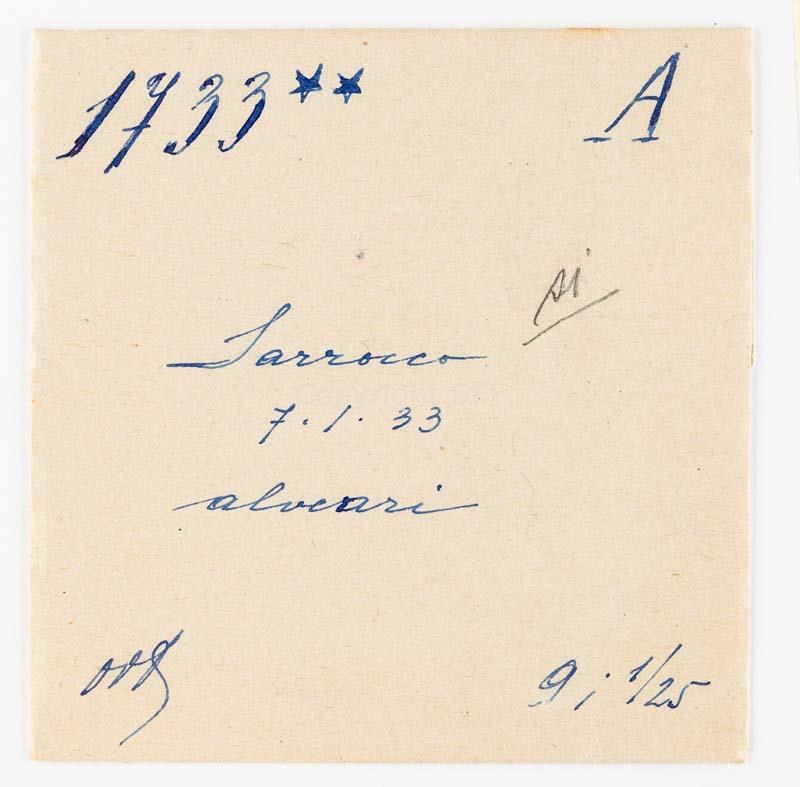 1733** A
si
Sarrocco
7.1.33
alveari
9; 1/25